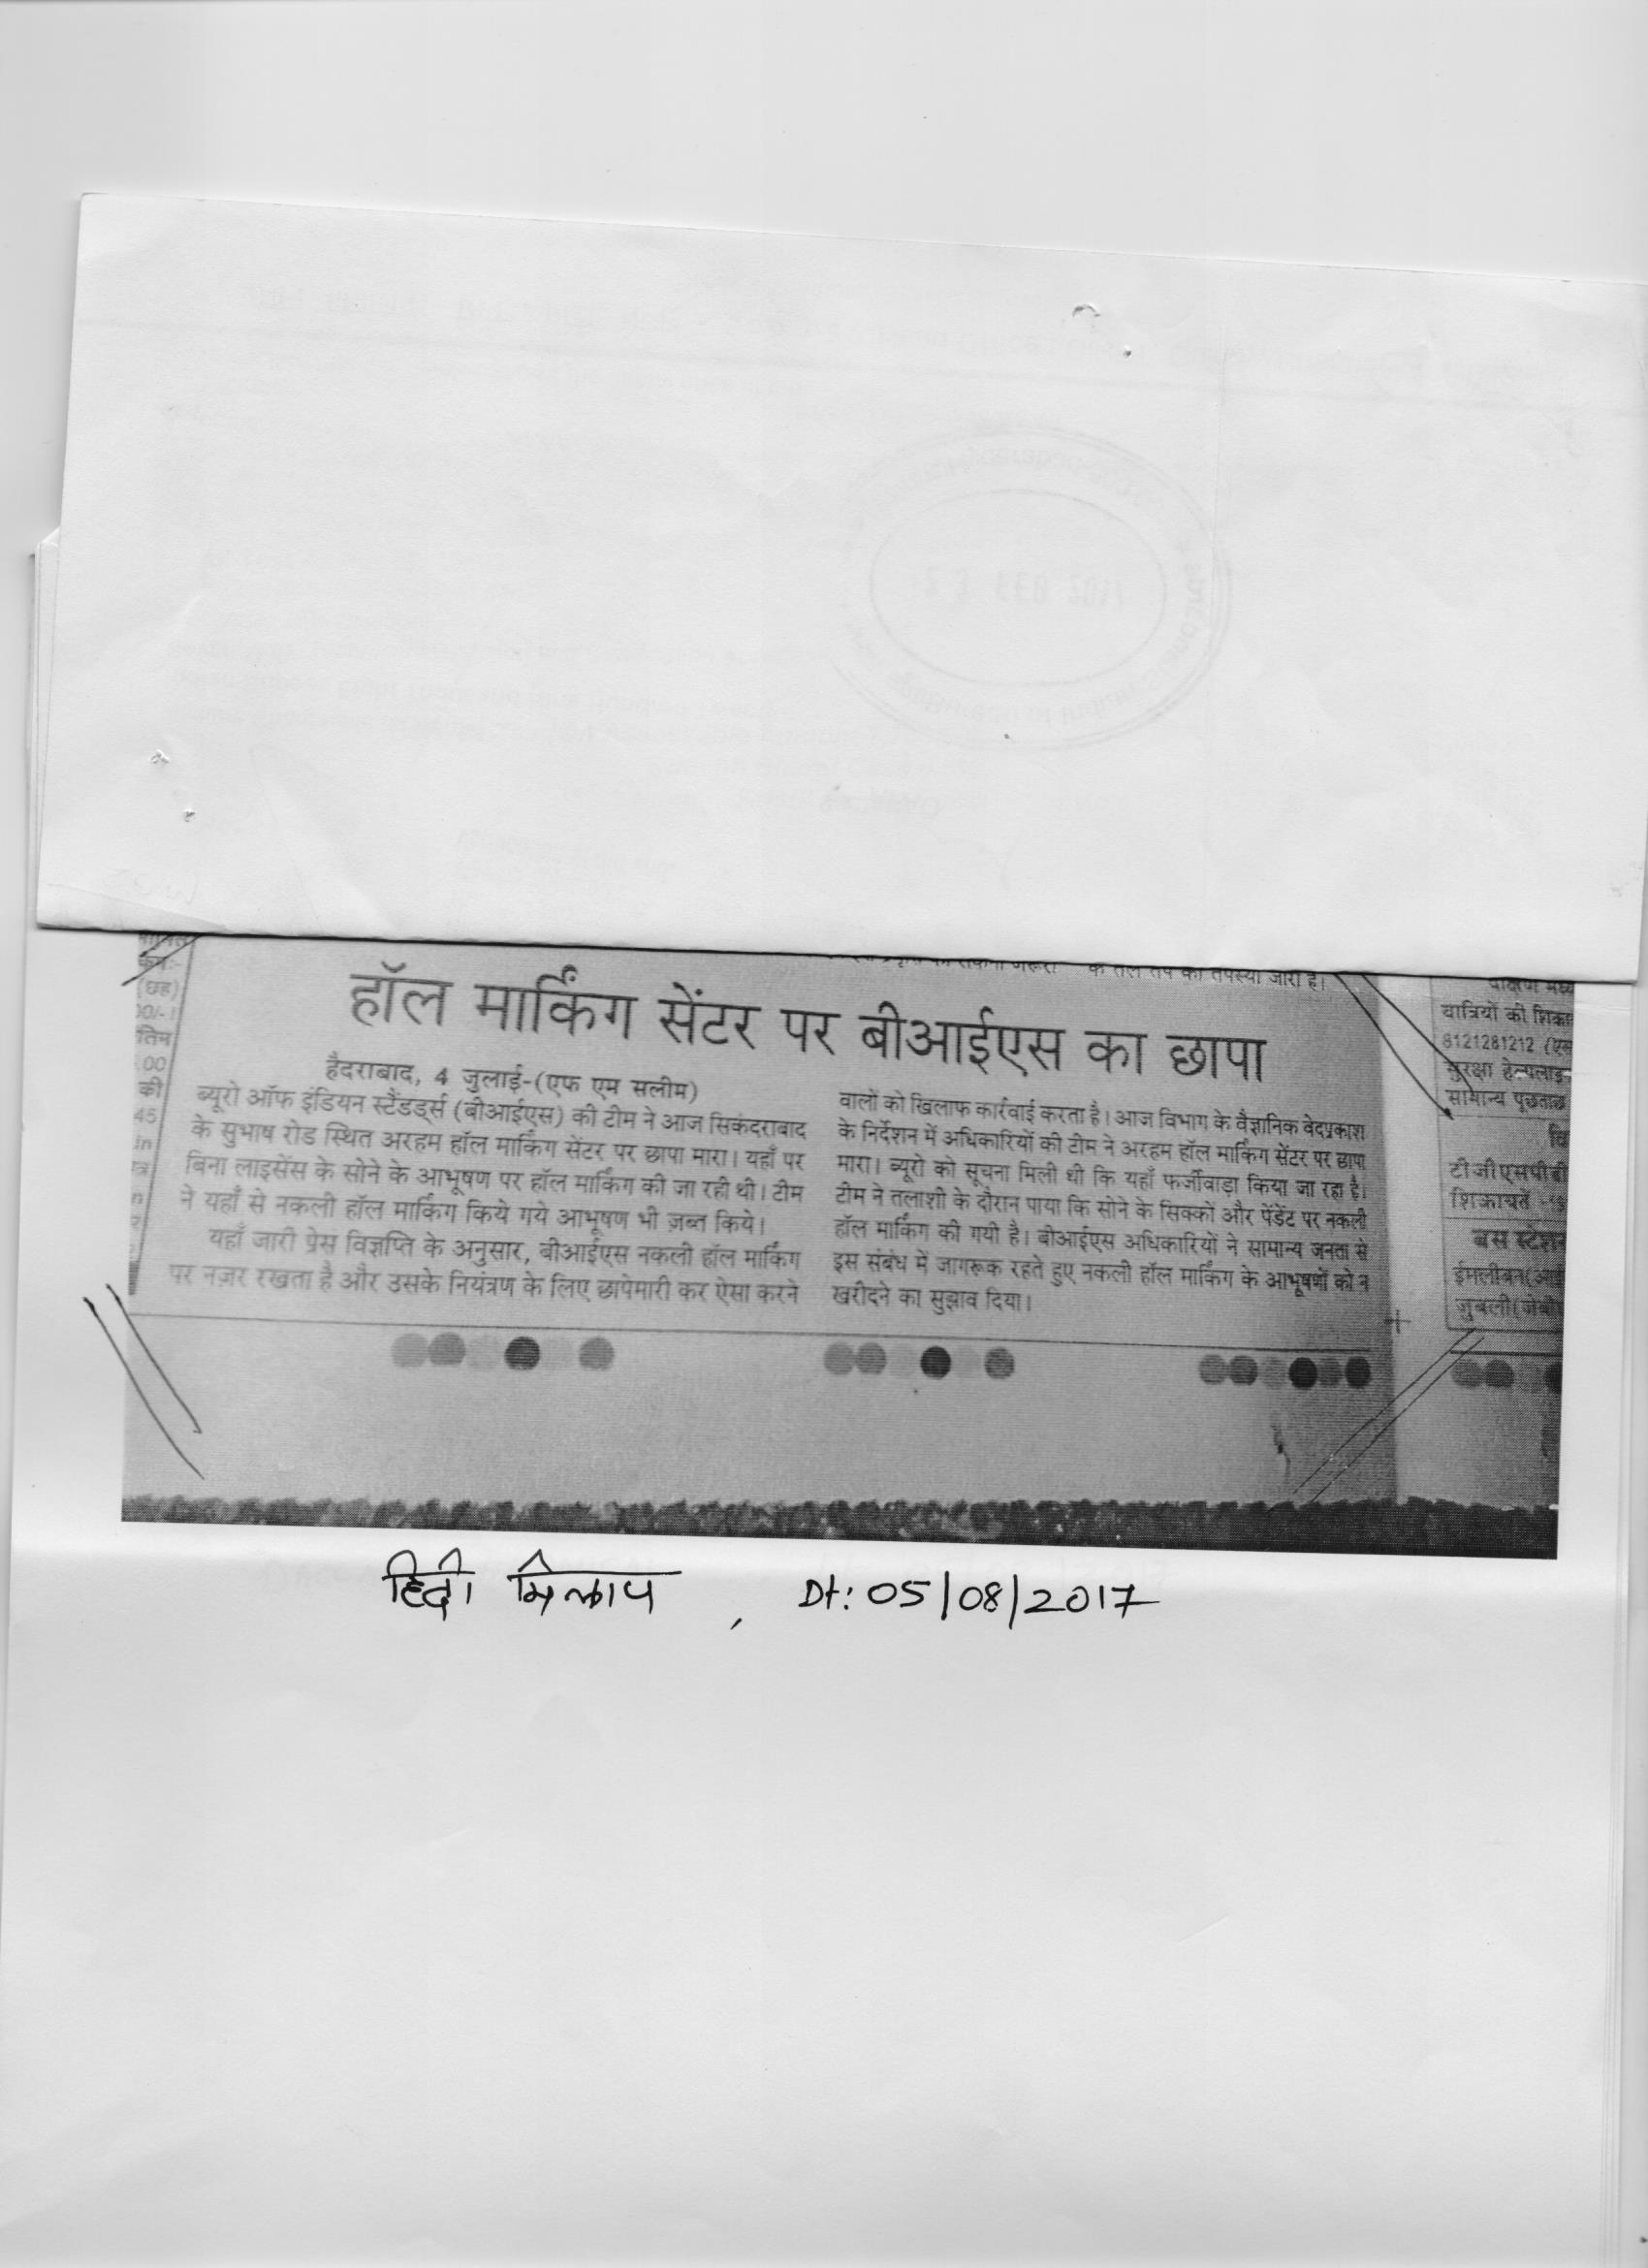 के तले तप की तपस्या जारी है।
हॉल मार्किंग सेंटर पर बीआईएस का छापा
हैदराबाद, 4 जुलाई-(एफ एम सलीम)
ब्यूरो ऑफ इंडियन स्टैंडर्ड्स (बीआईएस) की टीम ने आज सिकंदराबाद
के सुभाष रोड स्थित अरहम हॉल मार्किंग सेंटर पर छापा मारा। यहाँ पर
बिना लाइसेंस के सोने के आभूषण पर हॉल मार्किंग की जा रही थी। टीम
ने यहाँ से नकली हॉल मार्किंग किये गये आभूषण भी ज़ब्त किये।
यहाँ जारी प्रेस विज्ञप्ति के अनुसार, बीआईएस नकली हॉल मार्किंग
पर नज़र रखता है और उसके नियंत्रण के लिए छापेमारी कर ऐसा करने
वालों को खिलाफ कार्रवाई करता है। आज विभाग के वैज्ञानिक वेदप्रकाश
के निर्देशन में अधिकारियों की टीम ने अरहम हॉल मार्किंग सेंटर पर छापा
मारा। ब्यूरो को सूचना मिली थी कि यहाँ फर्जीवाड़ा किया जा रहा है।
टीम ने तलाशी के दौरान पाया कि सोने के सिक्कों और पेंडेंट पर नकली
हॉल मार्किंग की गयी है। बीआईएस अधिकारियों ने सामान्य जनता से
इस संबंध में जागरूक रहते हुए नकली हॉल मार्किंग के आभूषणों को न
खरीदने का सुझाव दिया।
यात्रियों की
8121281212
सुरक्षा हेल्पलाइन
सामान्य पूछताछ
टीजीएसपीडी
शिकायतें
बस स्टेशन
ईमलीबन
जुबली
हिंदी मिलाप , Dt: 05/08/2017